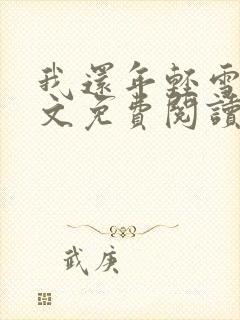 我還年輕雪
文免費閱讀
武庚